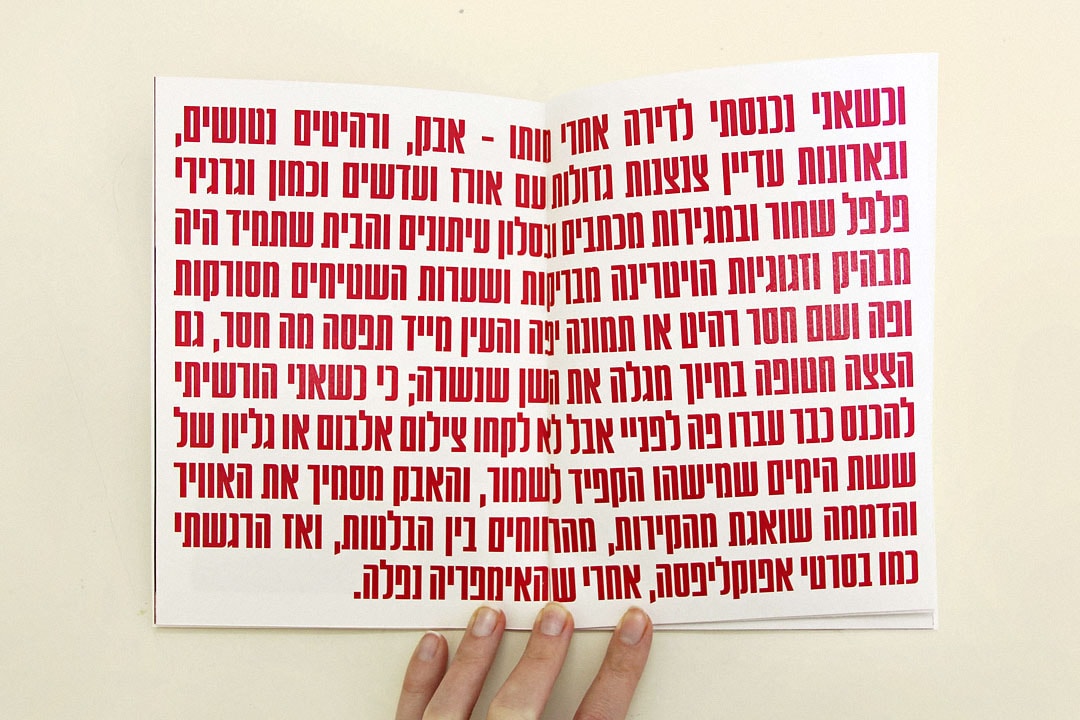 וכשאני נכנסתי לדירה אחרי מותו - אבק, ורהיטים נטושים,
ובארונות עדיין צנצנות גדולות עם אורז ועדשים וכמון וגרגירי
פלפל שחור ובמגירות מכתבים ובסלון עיתונים והבית שתמיד היה
מבהיק וזגוגיות הויטרינה מבריקות ושערות השטיחים מסורקות
ופה ושם חסר רהיט או תמונה יפה והעין מייד תפסה מה חסר, גם
הצצה חטופה בחיוך מגלה את השן שנשרה; כי כשאני הורשיתי
להכנס כבר עברו פה לפניי אבל לא לקחו צילום אלבום או גליון של
ששת הימים שמישהו הקפיד לשמור, והאבק מסמיך את האוויר
והדממה שואגת מהקירות, מהרווחים בין הבלטות, ואז הרגשתי
כמו בסרטי אפוקליפסה, אחרי שהאימפריה נפלה.